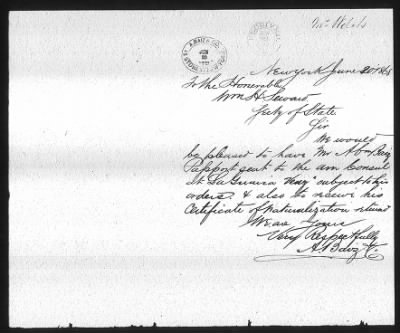 Mr Welsh
A. BAIZ & CO.
JUN
20
New York June 20th 1868
To the Honorable
Wm H. Seward.
Secty of State.
Sir
We would
be pleased to have Mr Abm Baiz
Passport sent to the am Consul
at La Guaira Venzy subject to his
orders. & also to receive his
Certificate of Naturalization return
We are Yours
Very Respectfully
A. Baiz & Co.